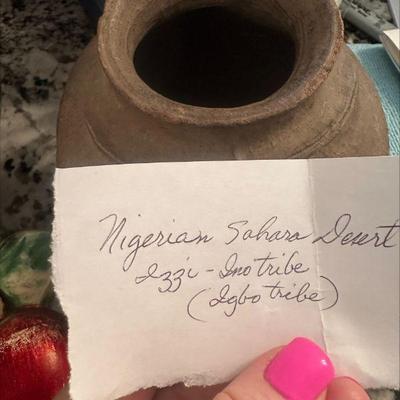 Nigerian Sahara Desert
Izzi - Ino tribe
(Igbo tribe)